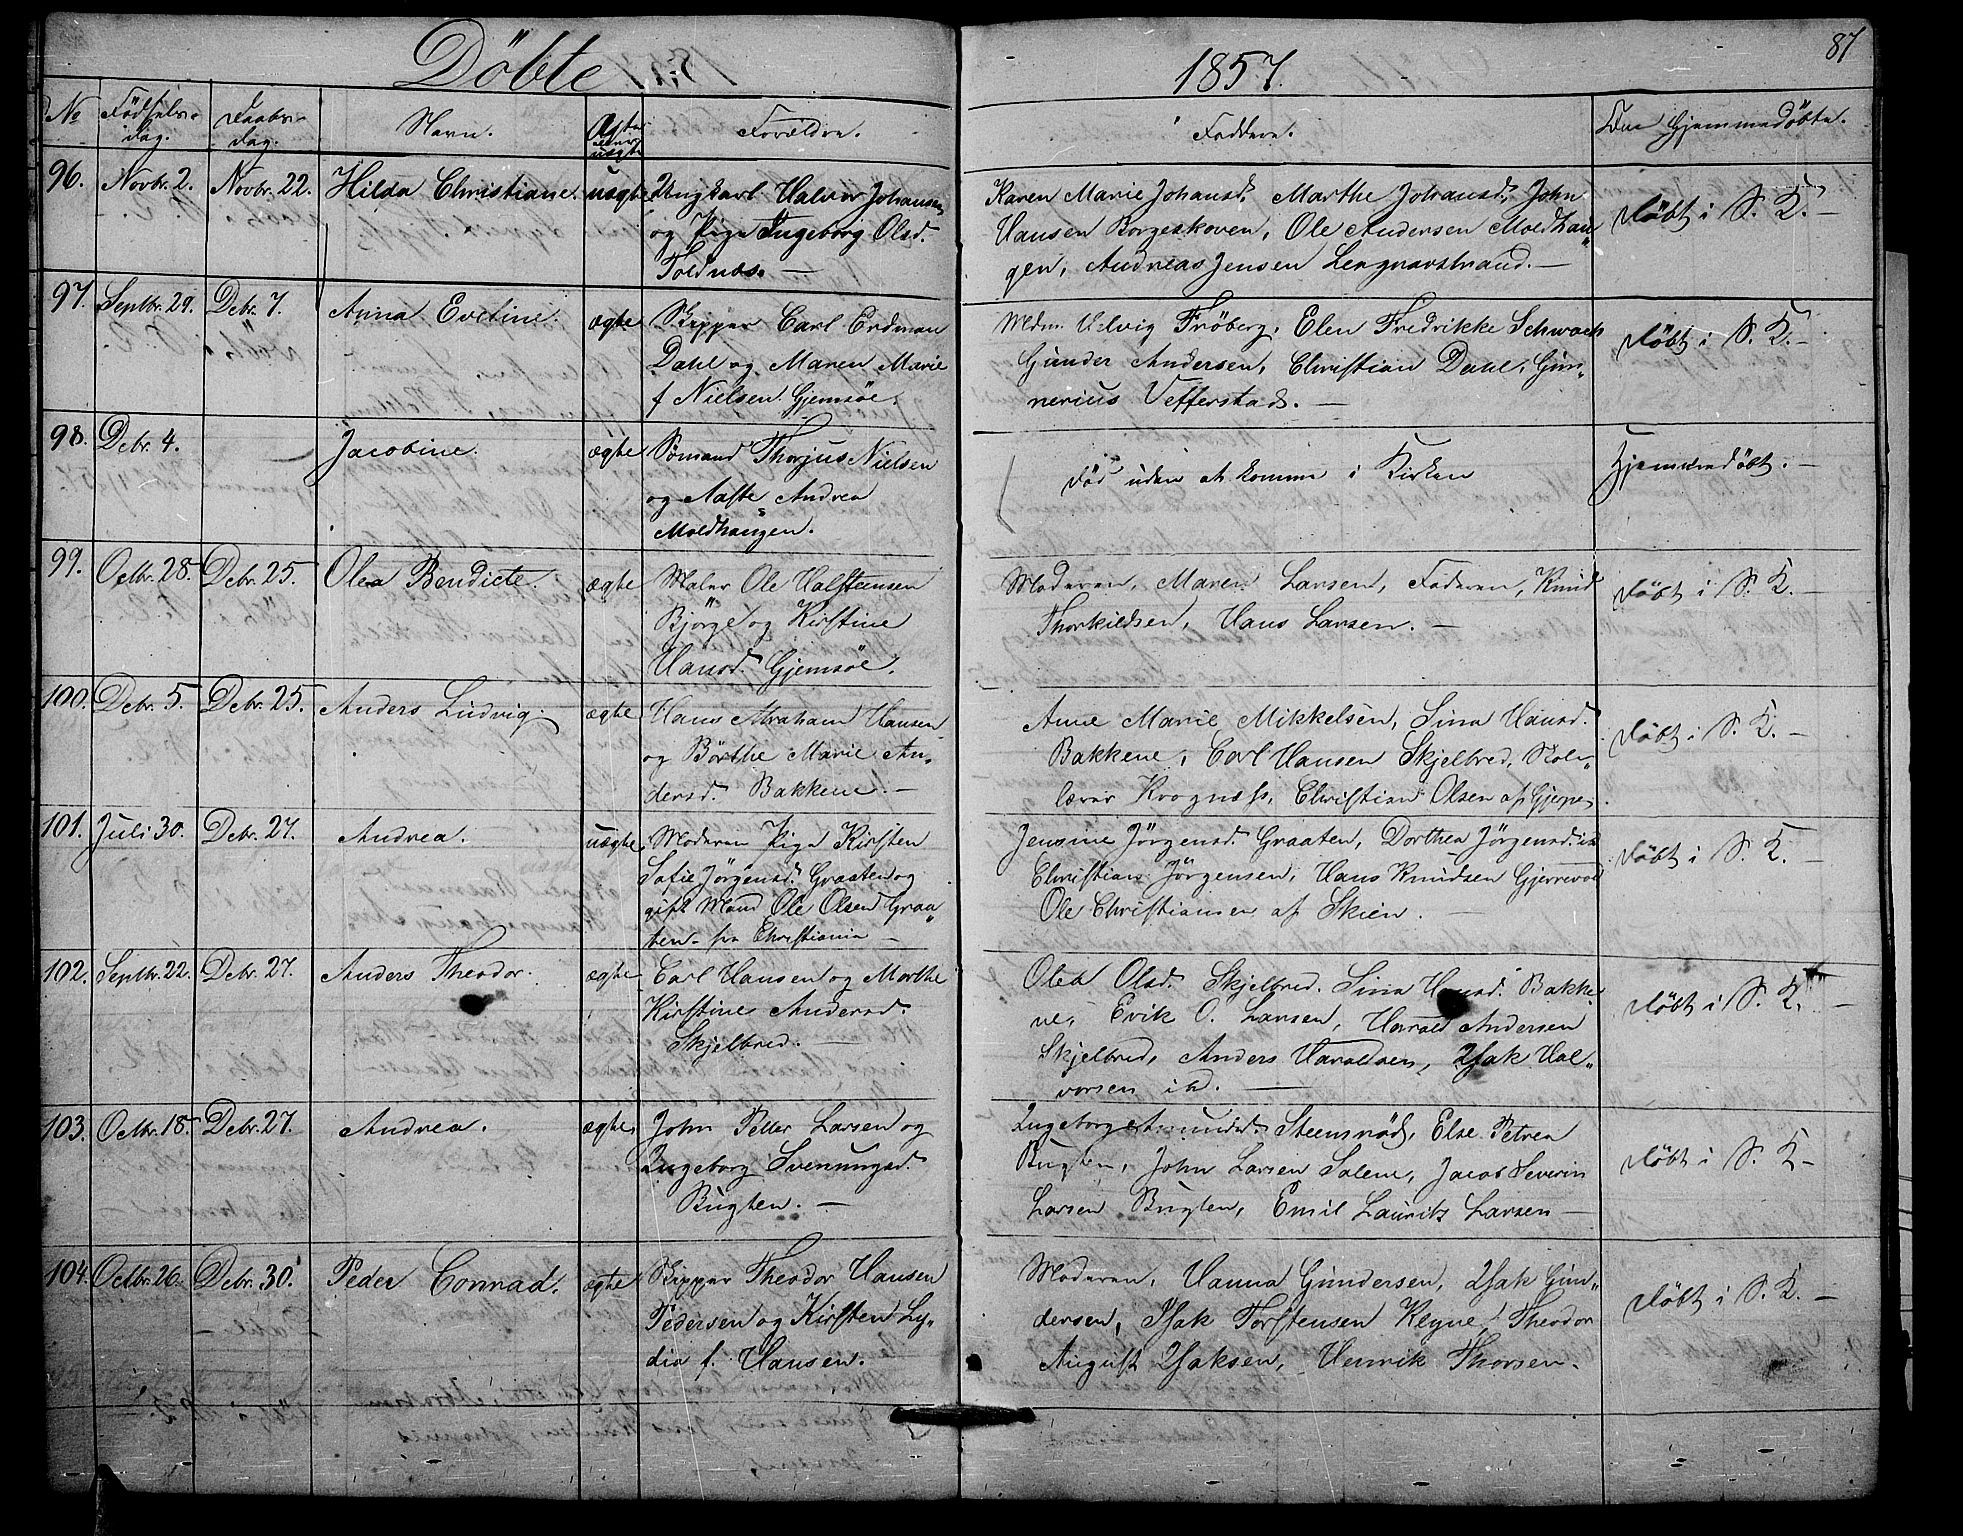 Döbte 1857. 87
No Födsels-dag. Daabs-dag. Navn. Ægte eller uægte Forældre. Faddere. Den Hjemmedöbte.
96. Novbr. 2. Novbr. 22. Hilda Christiane. uægte Ungkarl Halvor Johansen
og Pige Ingeborg Olsd.
Foldnæs. —
Karen Marie Johansd., Marthe Johansd., John
Hansen Borgeskoven, Ole Andersen Moldhau-
gen, Andreas Jensen Lengravstrand. —
döbt i S. K. —
97. Septbr. 29. Debr. 7. Anna Eveline. ægte Skipper Carl Erdman
Dahl og Maren Marie
f Nielsen. Gjemsöe.
Mdm. Edvig Fröberg, Elen Fredrikke Schwach
Gunder Andersen, Christian Dahl, Gun-
nerius Vefferstad. —
döbt i S. K. —
98. Debr. 4. Jacobine. ægte Sömand Thorjus Nielsen
og Aaste Andrea
Moldhaugen.
död uden at komme i Kirken
Hjemmedöbt. —
99. Octbr. 28. Debr. 25. Olea Bendicte. ægte Maler Ole Halfstensen
Björge og Kirstine
Hansd. Gjemsöe.
Moderen, Maren Larsen, Faderen, Knud
Thorkildsen, Hans Larsen. —
döbt i S. K. —
100. Debr. 5. Debr. 25. Anders Ludvig. ægte Hans Abraham Hansen
og Börthe Marie An-
dersd. Bakkene. —
Anne Marie Mikkelsen, Sina Hansd.
Bakkene, Carl Hansen Skjelbred, Skol-
lærer Krogness, Christian Olsen af Gjerpe
döbt i S. K. —
101. Juli 30. Debr. 27. Andrea. uægte Moderen Pige Kirsten
Sofie Jörgensd. Graaten og
gift Mand Ole Olsen Graa-
ten fra Christiania —
Jensine Jörgensd. Graaten, Dorthea Jörgensd. ibd
Christian Jörgensen, Hans Knudsen Gjerrevold
Ole Christiansen af Skien. —
döbt i S. K. —
102. Septbr. 22. Debr. 27. Anders Theodor. ægte Carl Hansen og Marthe
Kirstine Andersd.
Skjelbred. —
Olea Olsd. Skjelbred, Sina Hansd. Bakke
ne, Erik O. Larsen, Harald Andersen
Skjelbred, Anders Haraldsen, Isak Hal-
vorsen ibd. —
döbt i S. K. —
103. Octbr. 18. Debr. 27. Andrea. ægte John Peder Larsen og
Ingeborg Svenungsd.
Bugten. —
Ingeborg Amundsd. Steensröd, Else Petrea
Bugten, John Larsen Salene, Jacob Severin
Larsen Bugten, Emil Lauritz Larsen —
döbt i S. K —
104. Octbr. 26. Debr. 30. Peder Conrad. ægte Skipper Theodor Hansen
Pedersen og Kirsten Ly-
dia f. Hansen.
Moderen, Hanna Gundersen, Isak Gun-
dersen, Isak Torstensen Klyve, Theodor
August Isaksen, Henrik Thorsen.
döbt i S. K. —